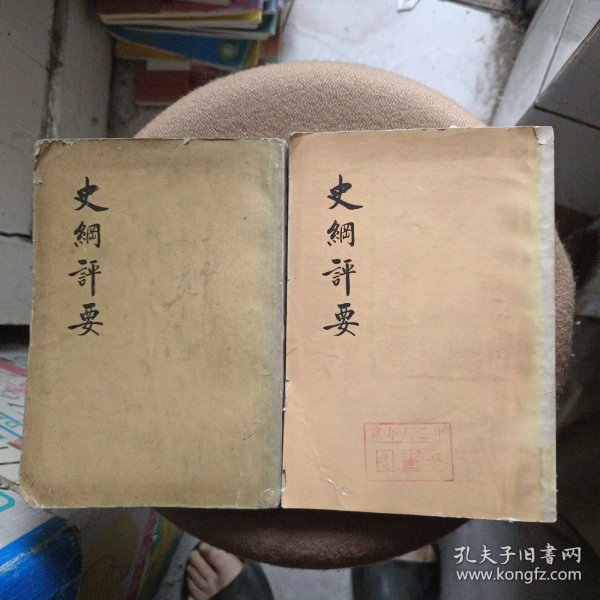 史綱評要
史綱評要
孔夫子旧書网
www.kongfz.com